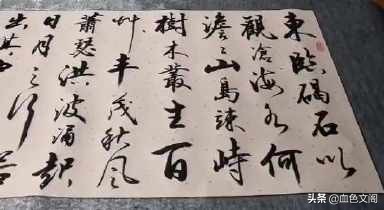 東臨碣石以
觀滄海水何
澹〻山島竦峙
樹木叢生百
艸丰茂秋風
蕭瑟洪波涌起
日月之行
出其
若
头条 @血色文阁